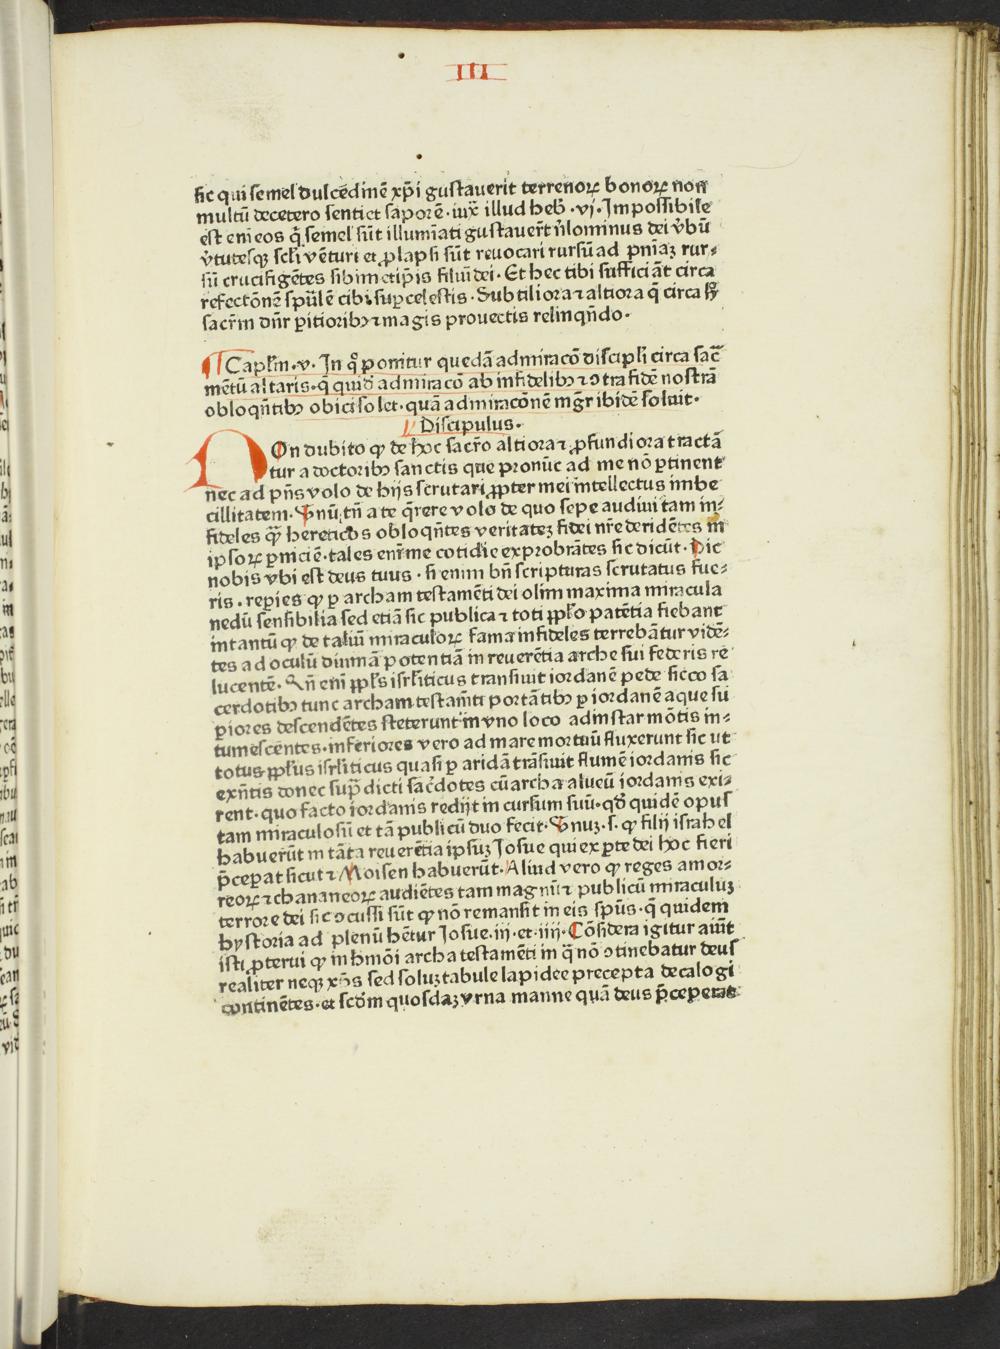 III
sic qui semel dulcedinē xp̄i gustauerit terrenoꝝ bonoꝝ non
multū decetero sentiet saporē · iux̄ illud heb̄ · vj · Impossibile
est eni eos q̄ semel sūt illumīati gustauer̄t n̄lominus dei v̄bū
v̄tutesqꝫ scl̄i vēturi et ꝓlapsi sūt reuocari rursū ad pn̄iaꝫ rur⸗
sū crucifigētes sibimetip̄is filiū dei · Et hec tibi sufficiāt circa
refectōnē spūlē cibi suꝑcelestis · Subtiliora ⁊ altiora q̄ circa
sacr̄m dn̄r ꝑitioribꝰ ⁊ magis prouectis relinqn̄do ·
¶ Capl̄m · v · In qͦ ponitur quedā admiracō discipl̄i circa sac̄
mētū altaris · q̄ quid̄ admiracō ab infidelibꝰ ⁊ ꝯtra fidē nostrā
obloqn̄tibꝰ obici solet · quā admiracōnē mḡr ibidē soluit ·
Discipulus ·
NOn dubito ꝙ de hͦc sacr̄o altiora ⁊ ꝓfundiora tractā
tur a doctoribꝰ sanctis que pronūc ad me nō ꝑtinent
nec ad pn̄s volo de hijs scrutari ꝓpter mei intellectus imbe
cillitatem · Vnū tn̄ a te q̄rere volo de quo sepe audiui tam in⸗
fideles q̄ hereticos obloqn̄tes veritateꝫ fidei nr̄e deridētes in
ipsoꝝ ꝑniciē · tales eni me cotidie exprobrātes sic dicūt · Dic
nobis vbi est deus tuus · si enim bn̄ scripturas scrutatus fue⸗
ris · reꝑies ꝙ ꝑ archam testamēti dei olim maxima miracula
nedū sensibilia sed etiā sic publica ⁊ toti ꝓpl̄o patētia fiebant
intantū ꝙ de taliū miraculoꝝ fama infideles terrebātur vidē⸗
tes ad oculū diuinā potentiā in reuerētia arche sui federis re
lucentē · Qn̄ eni ꝓpl̄s isrl̄iticus transiuit iordanē pede sicco sa
cerdotibꝰ tunc archam testam̄ti portātibꝰ ꝑ iordanē aque su
ꝑiores descendētes steterunt in vno loco adinstar mōtis in⸗
tumescentes · inferiores vero ad mare mortuū fluxerunt sic ut
totus ppl̄us isrl̄iticus quasi ꝑ aridā trāsiuit flumē iordanis sic
exn̄tis donec sup̄ dicti sac̄dotes cū archa alueū iordanis exi⸗
rent · quo facto iordanis redijt in cursum suū · qd̄ quidē opus
tam miraculosū et tā publicū duo fecit · Vnuꝫ · s · ꝙ filij israhel
habuer̄ūt in tāta reuerētia ipsuꝫ Josue qui ex ꝑte dei hͦc fieri
p̄ceꝑat sicut ⁊ Moisen habuerūt · Aliud vero ꝙ reges amor⸗
reoꝝ ⁊ chananeoꝝ audiētes tam magnū ⁊ publicū miraculuꝫ
terrore dei sic ꝯcussi sūt ꝙ nō remansit in eis spūs · q̄ quidem
hystoria ad plenū hētur Josue · iij · et · iiij · Cōsidera igitur aiūt
isti ꝓterui ꝙ in hmōi archa testamēti in q̄ nō ꝯtinebatur deus
realiter neqꝫ xp̄s sed soluꝫ tabule lapidee precepta decalogi
continētes · et scd̄m quosdaꝫ vrna manne quā deus p̄ceꝑat